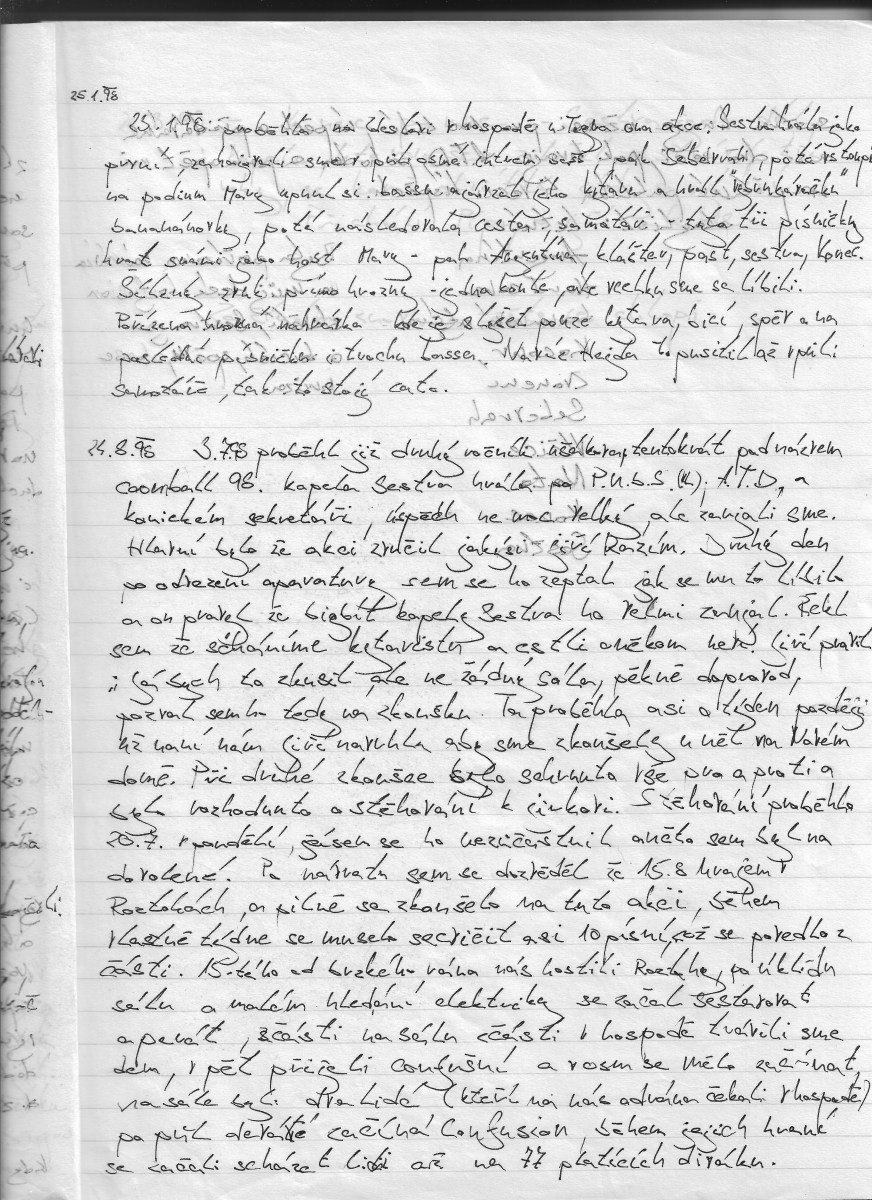 25.1.98
25.1.98 proběhla na Veslari v hospodě u ona akce. Sestra hrála jako
první, zahajgrali sme v půl osmé intrem pak Sebervrah, poté vstoupil
na podium Mary upnul si bassu a hrál
banánovky, poté následovala cesta, samotáři - tuto tři písničky
hrál s námi jako host Mary - pak Argentina - klášter, past, sestra, Konec.
zvuk přímo hrozný - jedna koule, ale všechku sme se líbili.
Pořízena hrozná nahrávka kde je slyšet pouze kytara, bicí, zpěv a na
poslední písničku i trochu bassa. Navíc Hejda to pustil až v půli
samotářů, takže to stojí za to.
24.8.98 3.7.98 proběhl již druhý ročník tentokrát pod názvem
coomball 98. kapela Sestra hrála po P.U.B.S. (H.), A.T.D., a
konickém sekretáři, úspěch ne moc velký, ale zaujali sme.
Hlavní bylo že akci zvučil jakýsi Jiří Ranzim. Druhý den
po odvezení aparatury sem se ho zeptal jak se mu to líbilo
a on pravil že bigbít kapely Sestra ho velmi zaujal. Řekl
sem že scháníme kytaristu a estli o někom neví. Jiří pravil
: "já bych to zkusil ale ne žádný sóla, pěkně doprovod,
pozval sem ho tedy na zkoušku. Ta proběhla asi o týden pozdějc
už na ní nám Jiří navrhl aby sme zkoušely u něj na Novém
domě. Při druhé zkoušce bylo schrnuto vše pro a proti a
bylo rozhodnuto o stěhování k Jirkovi. Stěhování proběhlo
20.7. v pondělí, já sem se ho nezúčastnil aněto sem byl na
dovolené. Po návratu sem se dozvěděl že 15.8 hrajem v
Roztokách, a pilně se zkoušelo na tuto akci, během
vlastně týdne se muselo secvičit asi 10 písní, což se povedlo z
části. 15-tého od brzkého rána nás hostili Roztoky, po úklidu
sálu a malém hledání elektriky se začal sestavovat
aparát, zčásti na sálu zčásti v hospodě trávili sme
den, v pět přijeli Confusní a v osm se mělo začínat,
na sále byli dva lidé (kteří na nás odrána čekali v hospodě)
po půl deváté začíná Confusion, během jejich hraní
se začali scházet lidi až na 77 platících diváku.